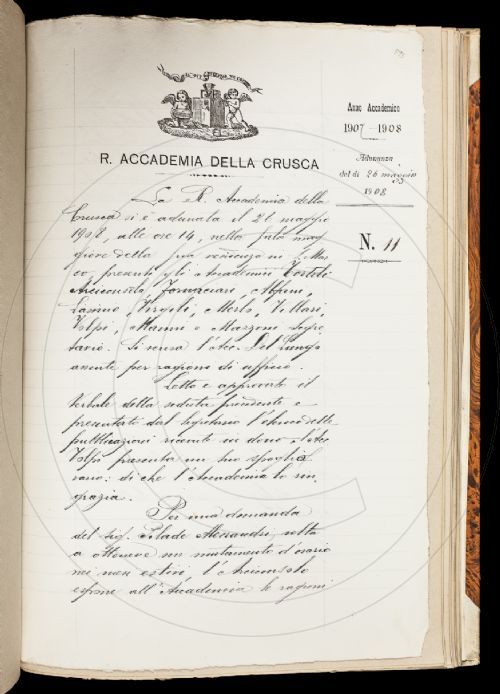 Anno Accademico
1907-1908
Adunanza
del dì 26 maggio
1908
N. 11
R. ACCADEMIA DELLA CRUSCA
La R. Accademia della
Crusca si è adunata il 26 maggio
1908, alle ore 14, nella sala mag
giore della sua residenza in S. Mar
co, presenti gli Accademici Tortoli
Arciconsolo, Fornaciari, Alfani,
Tommi, Virgili, Merlo, Villari,
Volpi, Mazzoni Segre
tario. Si scusa l'Acc. Del Lungo
assente per ragione di ufficio.
Letto e approvato il
verbale della seduta precedente e
presentato dal Segretario l'elenco delle
pubblicazioni ricevute in dono l'Acc.
Volpi presenta un suo spoglio
vario: di che l'Accademia lo rin
grazia.
Per una domanda
del sig. Pilade Alessandri, volta
a ottenere un mutamento d'orario
nei mesi estivi l'Arciconsolo
espone all'Accademia le ragioni